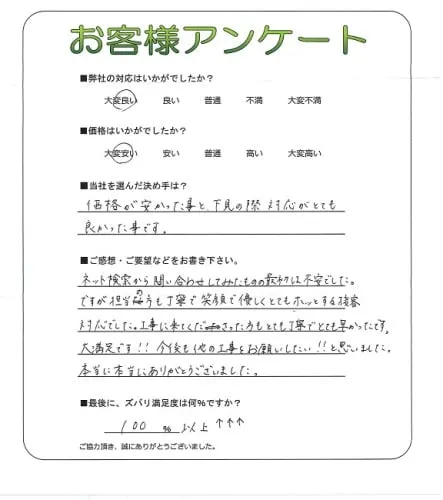 お客様アンケート
■弊社の対応はいかがでしたか?
大変良い 良い 普通 不満 大変不満
■価格はいかがでしたか?
大変安い 安い 普通 高い 大変高い
■当社を選んだ決め手は?
価格が安かった事と、下見の際 対応がとても
良かった事です。
■ご感想・ご要望などをお書き下さい。
ネット検索から問い合わせしてみたものの最初は不安でした。
ですが担当の方も丁寧で笑顔で優しくとてもホッとする接客
対応でした。工事に来てくださった方もとても丁寧でとても早かったです。
大満足です!! 今後も他の工事をお願いしたい!!と思いました。
本当に本当にありがとうございました。
■最後に、ズバリ満足度は何%ですか?
100 % 以上 ↑↑↑
ご協力頂き、誠にありがとうございました。